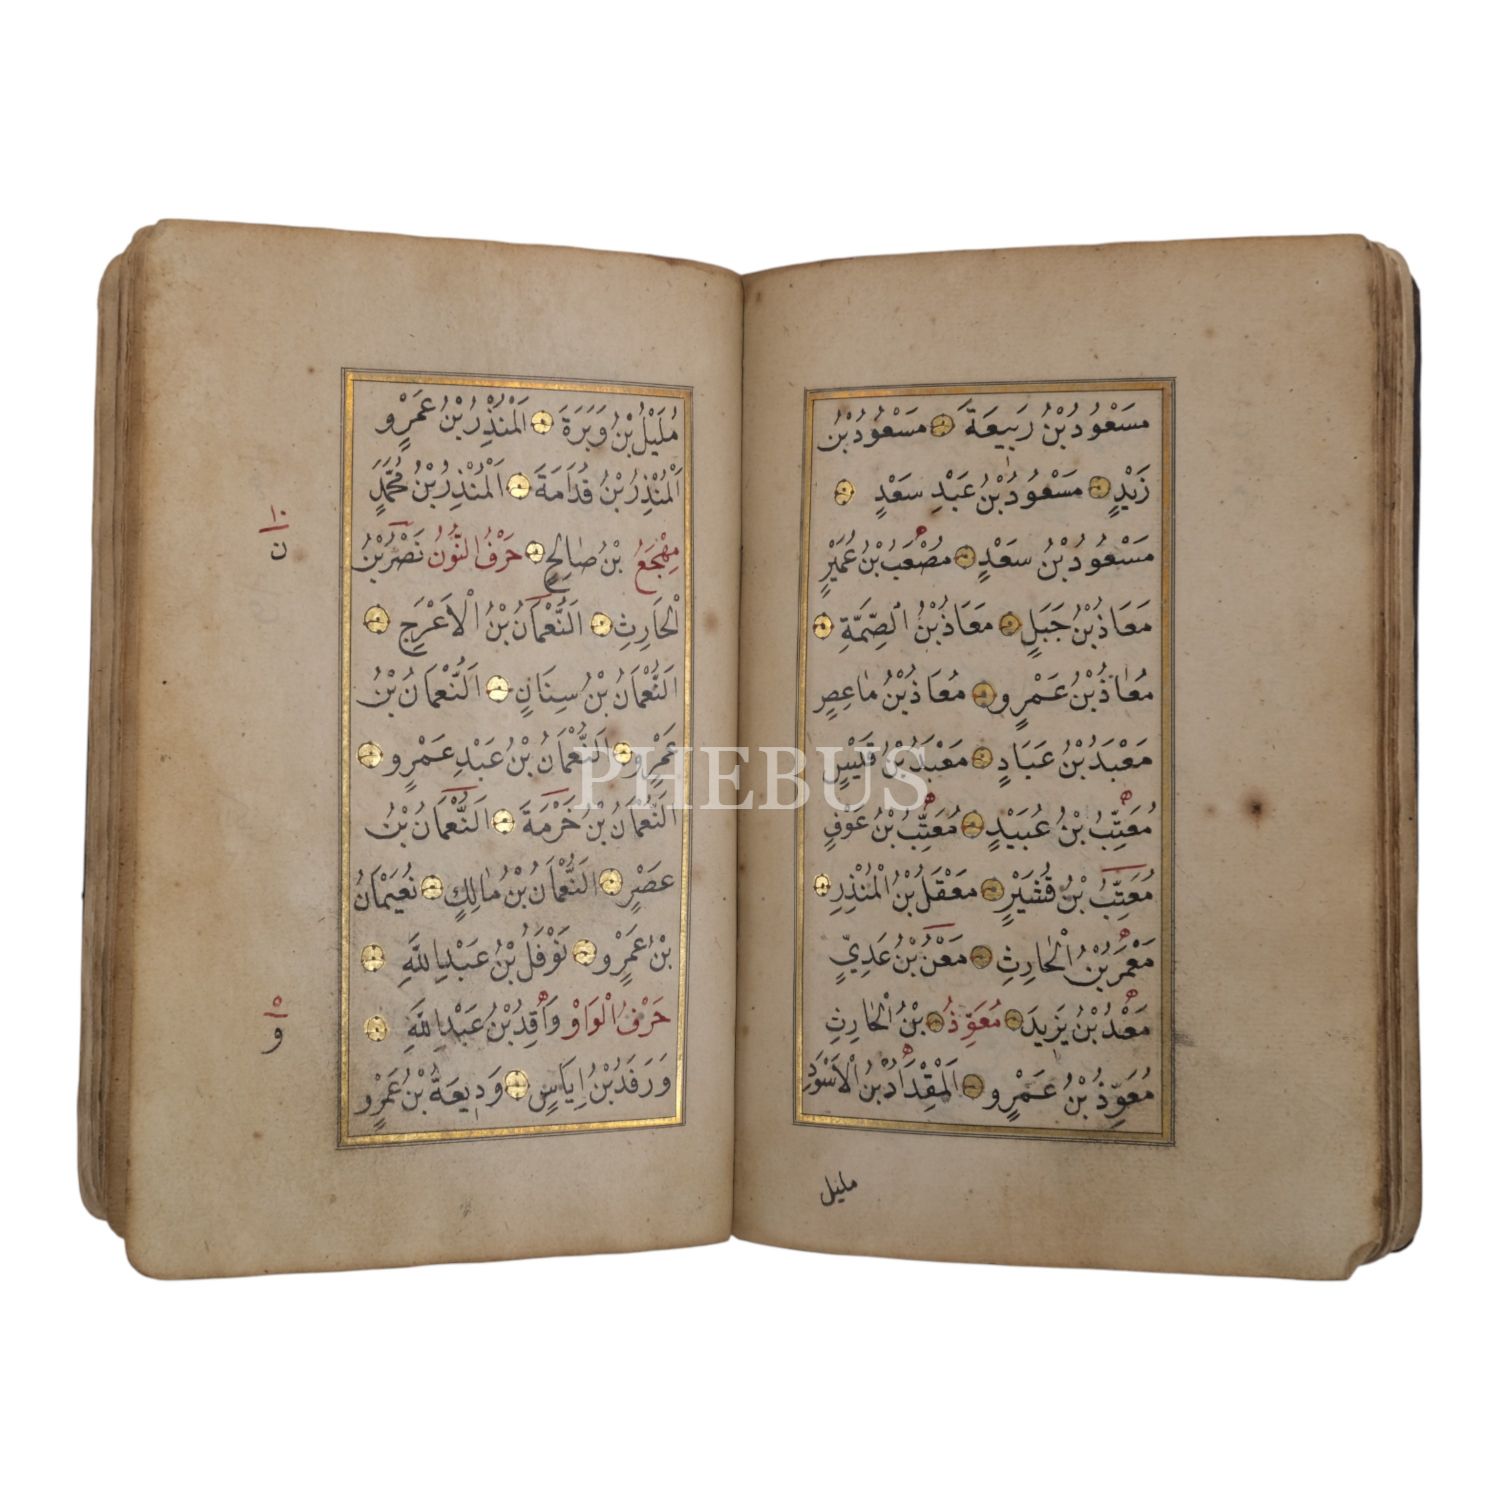 مَسْعُودُ بْنُ رَبِيعَةَ مَسْعُودُ بْنُ
زَيْدٍ مَسْعُودُ بْنُ عَبْدِ سَعْدٍ
مَسْعُودُ بْنُ سَعْدٍ مُصْعَبُ بْنُ عُمَيْرٍ
مَعَاذُ بْنُ جَبَلٍ مَعَاذُ بْنُ الصِّمَّةِ
مُعَاذُ بْنُ عَمْرٍو مُعَاذُ بْنُ مَاعِصٍ
مَعْبَدُ بْنُ عَبَادٍ مَعْبَدُ بْنُ قَيْسٍ
مُعَتِّبُ بْنُ عُبَيْدٍ مُعَتِّبُ بْنُ عَوْفٍ
مُعَتِّبُ بْنُ قُشَيْرٍ مَعْقَلُ بْنُ الْمُنْذِرِ
مَعْمَرُ بْنُ الْحَارِثِ مَعْنُ بْنُ عَدِيٍّ
مَعْدُ بْنُ يَزِيدَ مُعَوِّذُ بْنُ الْحَارِثِ
مُعَوِّذُ بْنُ عَمْرٍو اَلْمِقْدَادُ بْنُ الْاَسْوَدِ
مليل
مُلَيْلُ بْنُ وَبَرَةَ اَلْمُنْذِرُ بْنُ عَمْرٍو
اَلْمُنْذِرُ بْنُ قُدَامَةَ اَلْمُنْذِرُ بْنُ مُحَمَّدٍ
مِهْجَعُ بْنُ صَالِحٍ حَرْفُ النُّونُ نَصْرُ بْنُ
الْحَارِثِ اَلنُّعْمَانُ بْنُ الْاَعْرَجِ
اَلنُّعْمَانُ بْنُ سِنَانٍ اَلنُّعْمَانُ بْنُ
عَمْرٍو اَلنُّعْمَانُ بْنُ عَبْدِ عَمْرٍو
اَلنُّعْمَانُ بْنُ خَزْمَةَ اَلنُّعْمَانُ بْنُ
عَصْرٍ اَلنُّعْمَانُ بْنُ مَالِكٍ نُعَيْمَانُ
بْنُ عَمْرٍو نَوْفَلُ بْنُ عَبْدِ اللَّهِ
حَرْفُ الْوَاوْ وَاقِدُ بْنُ عَبْدِ اللَّهِ
وَرَفَدُ بْنُ اِيَاسٍ وَدِيعَةُ بْنُ عَمْرٍو
١٠
ن
٥
و
PHEBUS